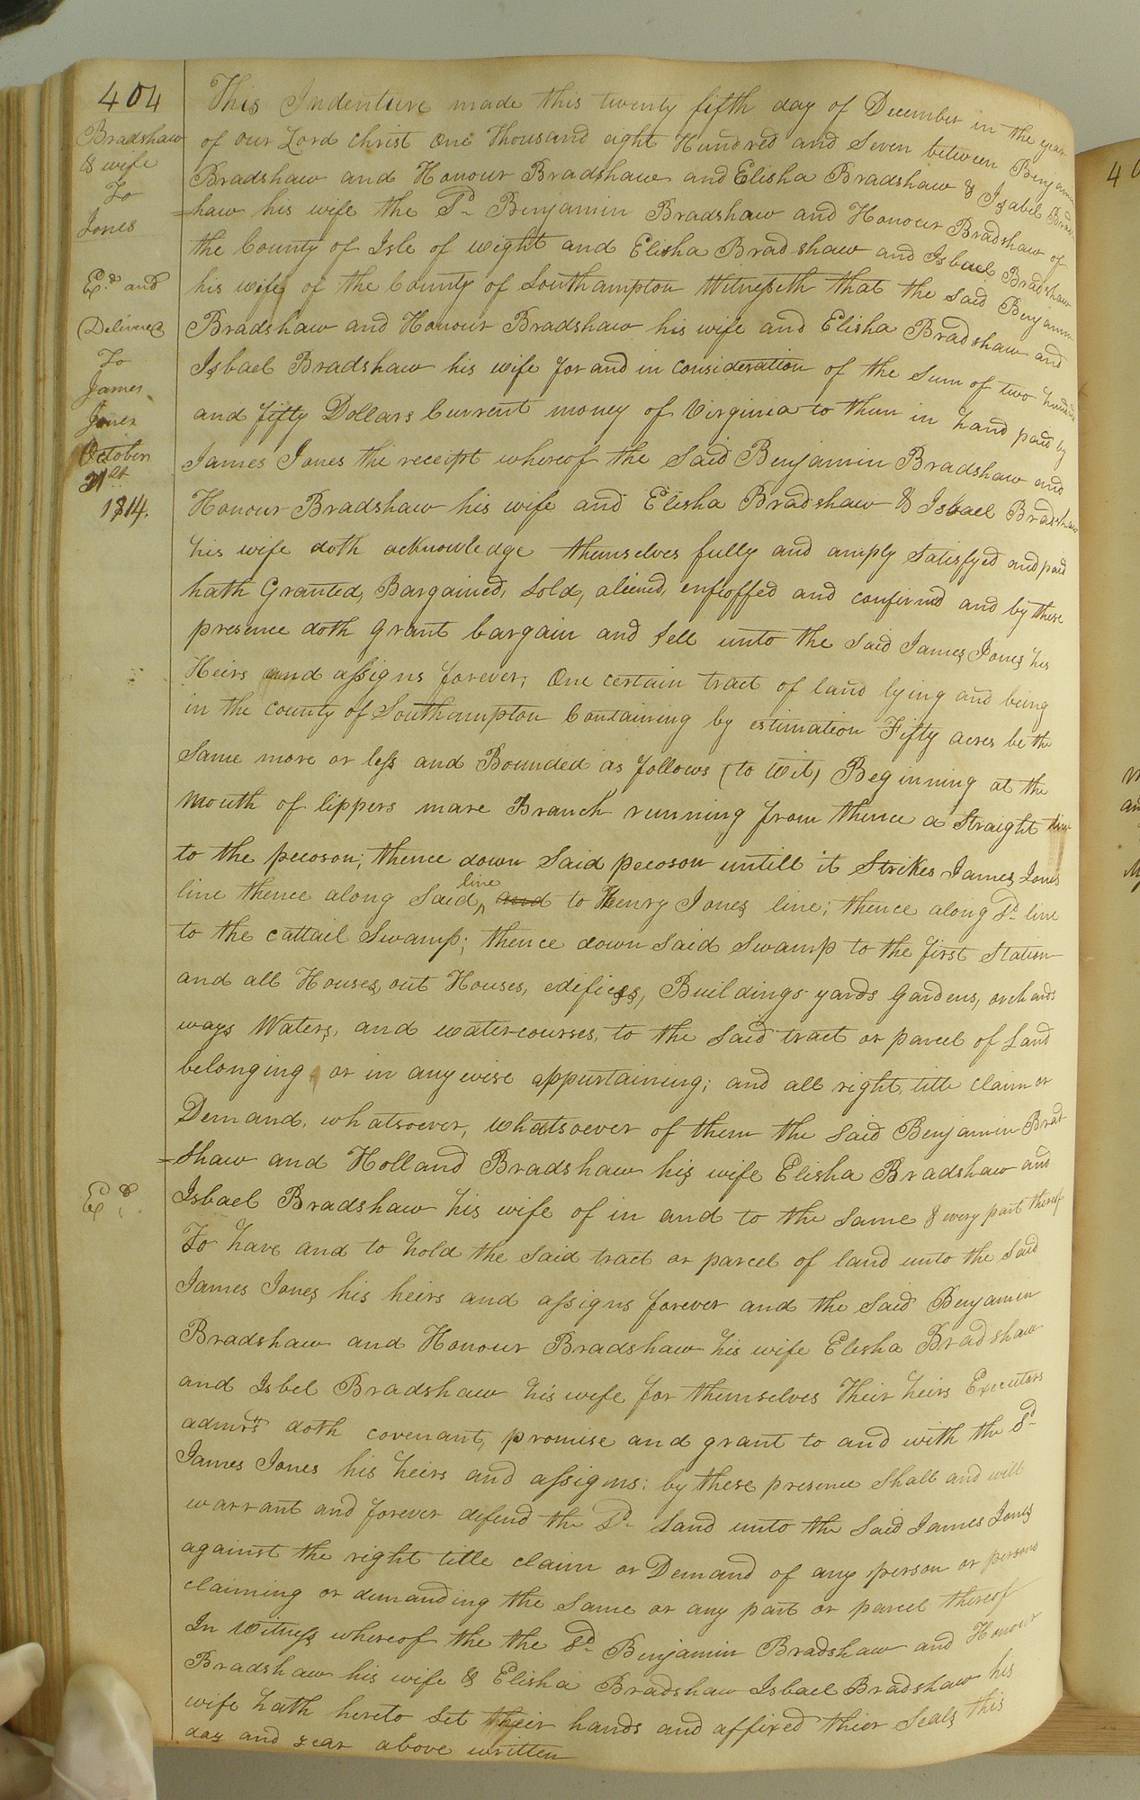 404
Bradshaw
& wife
To
Jones
Ex.d and
Delivered
To
James
Jones
October
21st
1814.
This Indenture made this twenty fifth day of December in the year
of our Lord Christ One Thousand eight Hundred and Seven between Benjamin
Bradshaw and Honour Bradshaw and Elisha Bradshaw & Isabel Brads
=haw his wife the Sd. Benjamin Bradshaw and Honour Bradshaw of
the County of Isle of wight and Elisha Bradshaw and Isbael Bradshaw
his wife of the County of Southampton Witnesseth that the Said Benjamin
Bradshaw and Honour Bradshaw his wife and Elisha Bradshaw and
Isbael Bradshaw his wife for and in consideration of the Sum of two hundred
and fifty Dollars Current money of Virginia to them in hand paid by
James Jones the receipt whereof the Said Benjamin Bradshaw and
Honour Bradshaw his wife and Elisha Bradshaw & Isbael Bradshaw
his wife doth acknowledge themselves fully and amply Satisfyed and paid
hath Granted, Bargained, Sold, aliened, enfoffed and confirmd and by these
presence doth grant bargain and Sell unto the Said James Jones his
Heirs and assigns forever, One certain tract of land lying and being
in the county of Southampton Containing by estimation Fifty acres be the
Same more or less and Bounded as follows (to Wit) Beginning at the
Mouth of lippers mare Branch running from thence a Straight line
to the pecoson; thence down Said pecoson untill it Strikes James Jones
line thence along Said line and to Henry Jones line; thence along Sd. line
to the cattail Swamp; thence down Said Swamp to the first Station
and all Houses, out Houses, edifices, Buildings yards Gardens, orchards
ways Waters, and watercourses, to the Said tract or parcel of Land
belonging or in any wise appurtaining; and all right, title claim or
Demand, whatsoever, whatsoever of them the Said Benjamin Brad
=shaw and Holland Bradshaw his wife Elisha Bradshaw and
Isbael Bradshaw his wife of in and to the Same & every part thereof
Ex.d
To have and to hold the Said tract or parcel of land unto the Said
James Jones his heirs and assigns forever and the Said Benjamin
Bradshaw and Honour Bradshaw his wife Elisha Bradshaw
and Isbel Bradshaw his wife for themselves Their heirs Executors
admrs doth covenant, promise and grant to and with the Sd.
James Jones his heirs and assigns: by these presence Shall and will
warrant and forever defend the Sd. Land unto the Said James Jones
against the right title claim or Demand of any person or persons
claiming or demanding the Same or any part or parcel thereof
In Witness whereof the the Sd. Benjamin Bradshaw and Honour
Bradshaw his wife & Elisha Bradshaw Isbael Bradshaw his
wife hath hereto Set their hands and affixed thier Seals this
day and year above written